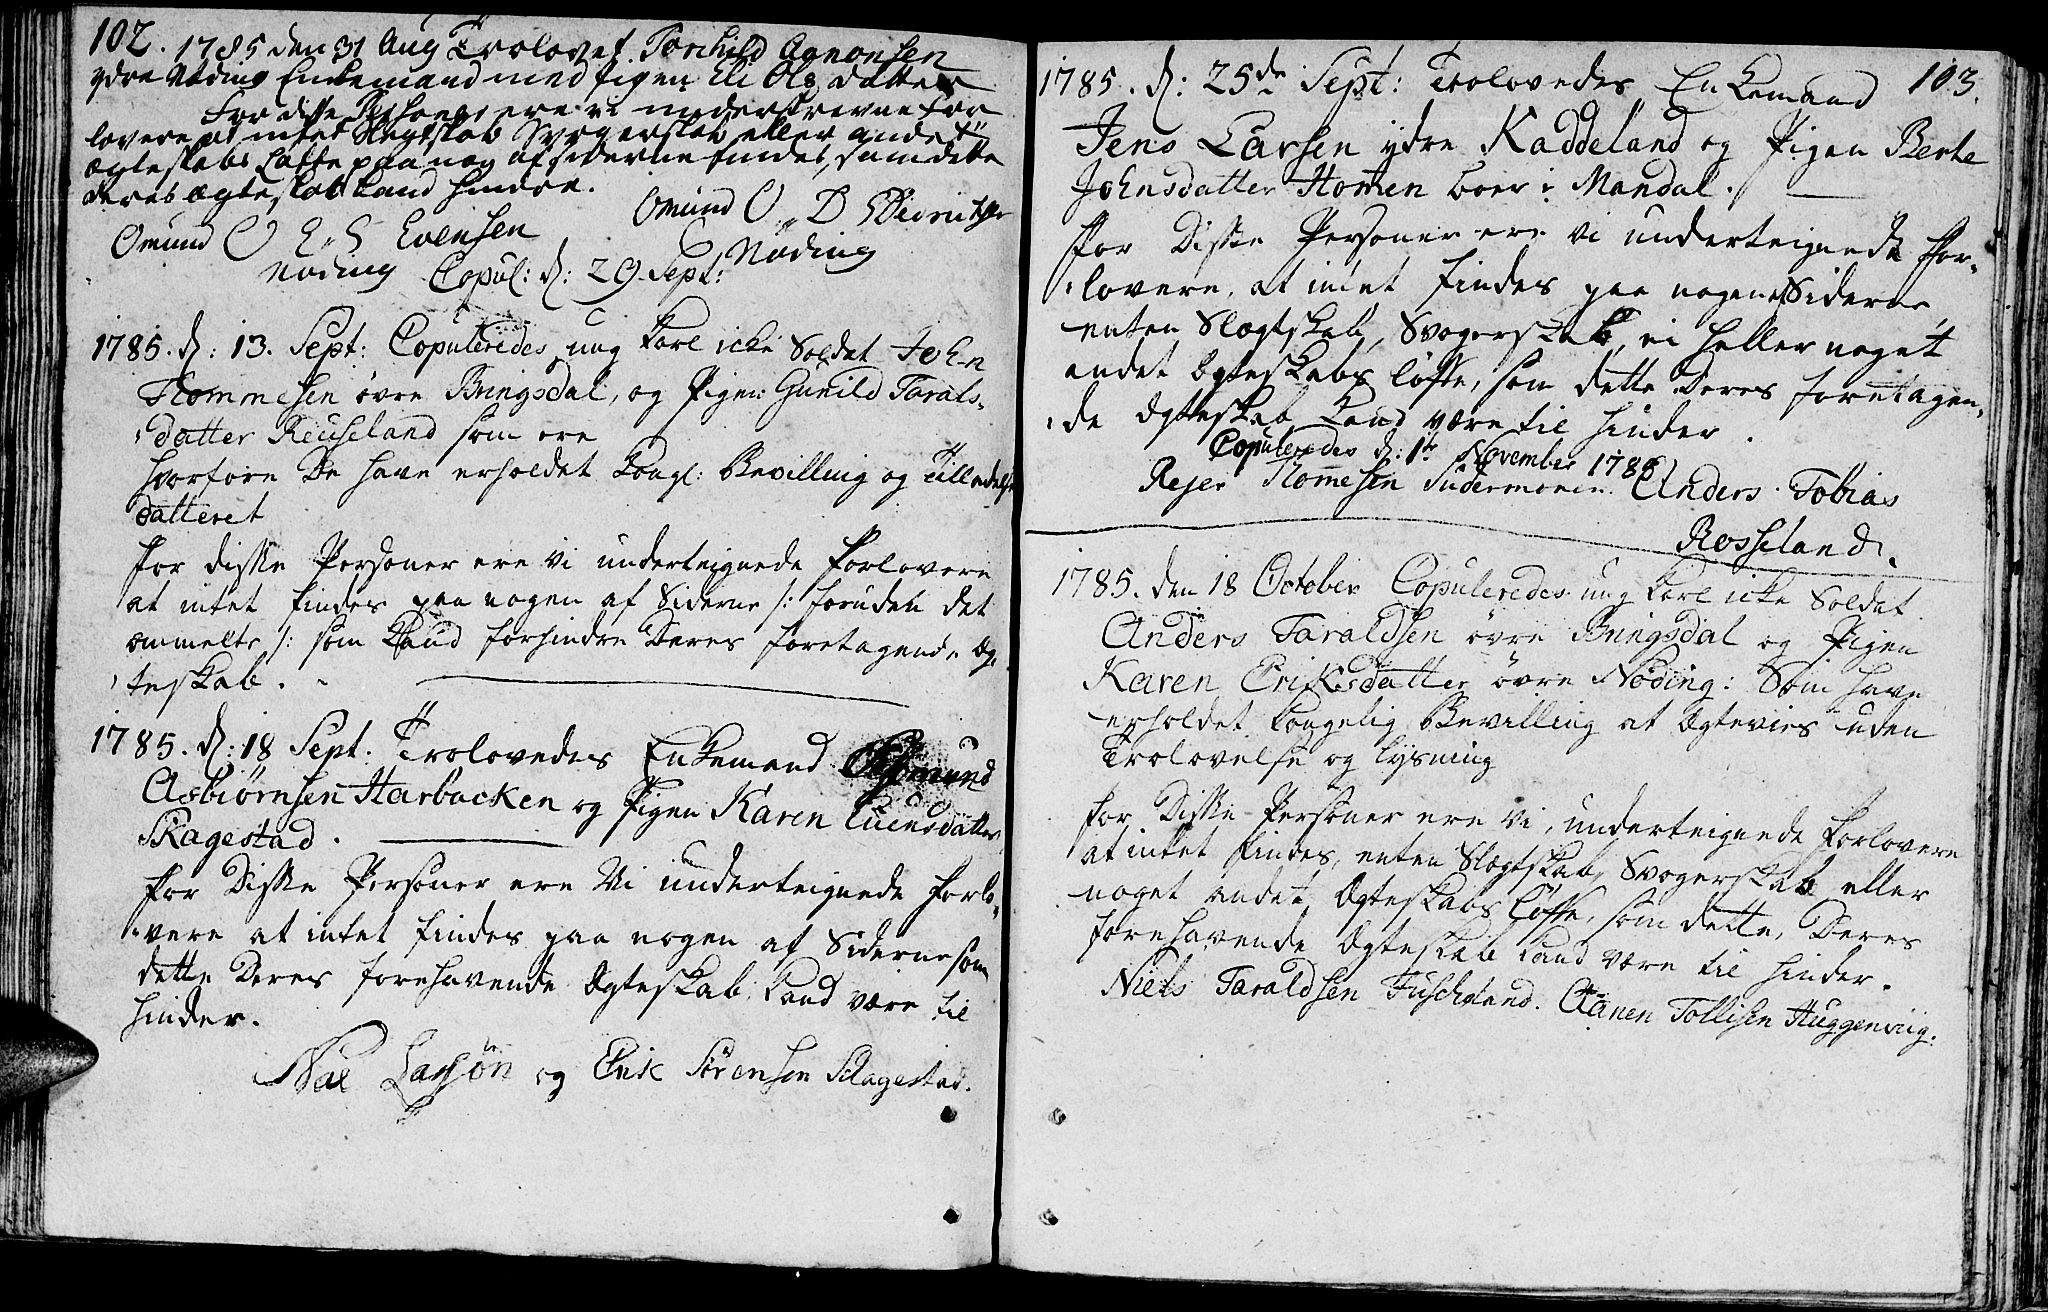 102. 1785 den 31 Aug Trolovet Torchild Aanonsen
ydre Nøding Enkemand med pigen Eli Olsdatter
For disse Personer ere vi underskrevne for
lovere at intet Slegtskab Svogerskab eller andet
ægteskabs Løfte paa nog af siderne findes, som dette
deres ægteskab kand hindre.
Omund O D Didrichsen
Nøding
Omund O E S Evensen
Nøding Copul: d: 29 Sept:
1785. d: 13. Sept: Copuleredes ung Karl icke Soldat John
Thommesen øvre Bringsdal, og Pigen Gunild Tarals-
datter Reuseland som ere
hvorfore De have erholdet Kongl: Bevilling og Tilladelse
datteret
For disse Personer ere vi underteignede Forlovere
at intet findes paa nogen af Siderne /: foruden det
ommelte :/ som kand forhindre Deres foretagende Æg-
teskab.
1785. d: 18 Sept. Trolovedes Enkemand Osmund
Asbiørnsen Harbacken og Pigen Karen Euensdatter
Skagestad.
For Disse Personer ere Vi underteignede Forlo-
vere at intet findes paa nogen af Siderne som
dette Deres forehavende Ægteskab kand være til
hinder.
Niel Larsøn og Erik Sørensen Skagestad.
1785. d: 25de Sept: Trolovedes Enkemand 103.
Jens Larsen ydre Kaddeland og Pigen Berte
Johnsdatter Homen boer i Mandal.
For Disse Personer ere vi underteignede For-
lovere, at intet findes paa nogen af Siderne,
enten Slægtskab, Svogerskab, ei heller noget
andet Ægteskabs løfte, som dette Deres foretagen-
de Ægteskab kand være til hinder.
Copuleredes d: 1te November 1785
Rejer Thomesen Sødermoren. Anders Tobias
Rosseland.
1785. den 18 October Copuleredes ung Karl icke Soldat
Anders Taraldsen øvre Bringsdal og Pigen
Karen Eriksdatter øvre Nøding: Som have
erholdet kongelig Bevilling at Ægtevies uden
Trolovelse og Lysning
For Disse Personer ere vi, underteignede Forlovere
at intet findes, enten Slægtskab, Svogerskab eller
noget andet Ægteskabs Løfte, som dette, Deres
forehavende Ægteskab kand være til hinder.
Niels Taraldsen Fuschland. Aanen Tollisen Huggenviig.